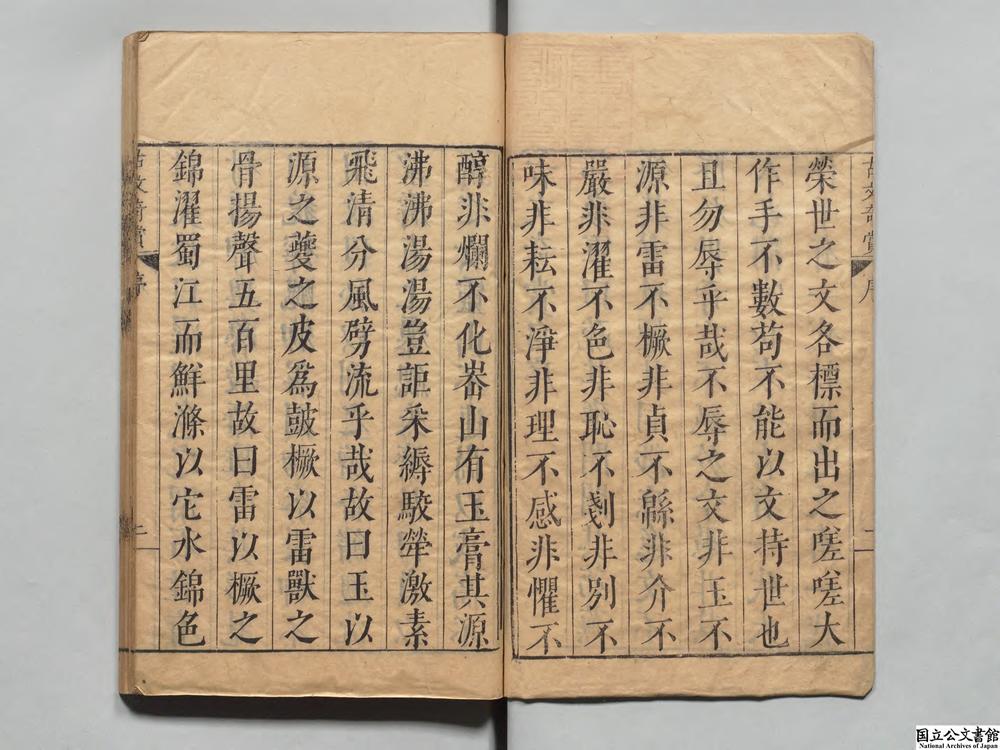 榮世之文各標而出之嗟嗟大
作手不數苟不能以文持世也
且勿辱乎哉不辱之文非玉不
源非雷不橛非貞不緜非介不
嚴非濯不色非恥不剗非別不
味非耘不淨非理不感非懼不
醇非爛不化峚山有玉膏其源
沸沸湯湯豈詎采縟駮犖激素
飛清分風劈流乎哉故曰玉以
源之夔之皮爲皷橛以雷獸之
骨揚聲五百里故曰雷以橛之
錦濯蜀江而鮮滌以它水錦色
古文奇賞 序
一
古文奇賞 序
二
国立公文書館
National Archives of Japan